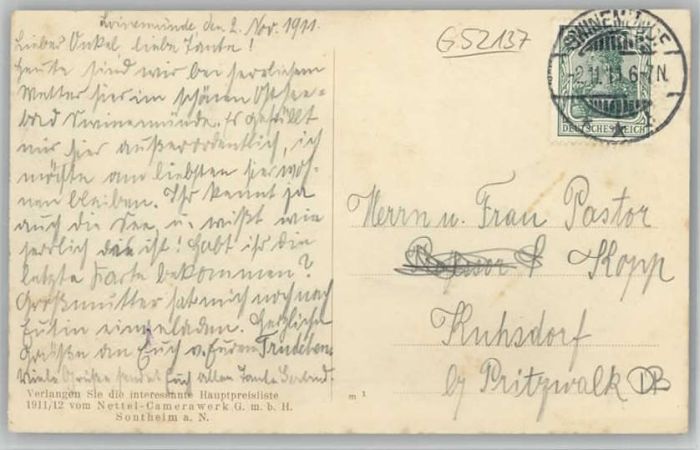 Swinemünde, den 2. Nov. 1911.
Lieber Onkel, liebe Tante!
Heute sind wir bei herrlichem
Wetter hier im schönen Ostsee-
bad Swinemünde. Es gefällt
mir hier außerordentlich, ich
möchte am liebsten hier woh-
nen bleiben. Ihr kennt ja
auch die See u. wißt wie
herrlich das ist! Habt ihr die
letzte Karte bekommen?
Großmutter hat mich noch nach
Eutin eingeladen. Herzliche
Grüße an Euch v. Euren Trudchen.
Viele Grüße sendet Euch allen Tante
Verlangen Sie die interessante Hauptpreisliste
1911/12 vom Nettel-Camerawerk G. m. b. H.
Sontheim a. N.
m 1
G52137
SWINEMÜNDE
2.11.11.6-7N.
DEUTSCHES REICH
Herrn u. Frau Pastor
Kopp
Kuhsdorf
by Pritzwalk